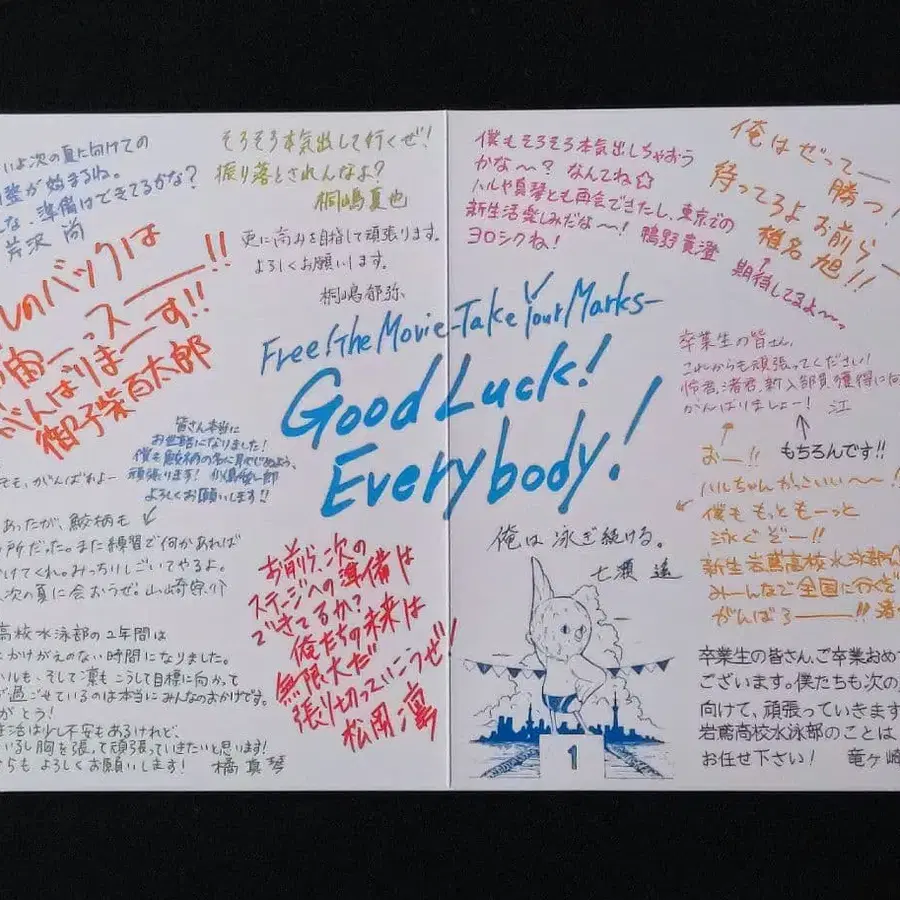 いよ次の夏に向けての
が始まるね。
な、準備はできてるかな?
芹沢 尚
そろそろ本気出して行くぜ!
振り落とされんなよ?
桐嶋夏也
更に高みを目指して頑張ります。
よろしくお願いします。
桐嶋郁弥
のバックは
宙ーっスーー!!
がんばりまーす!!
御子柴百太郎
皆さん本当に
お世話になりました!
僕も鮫柄の名に恥じぬよう、
頑張ります! 似鳥愛一郎
よろしくお願いします!!
も、がんばれよー
あったが、鮫柄も
所だった。また練習で何かあれば
けてくれ。みっちりしごいてやるよ。
次の夏に会おうぜ。山崎宗介
高校水泳部の2年間は
かけがえのない時間になりました。
ハルも、そして凛もこうして目標に向かって
過ごせているのは本当にみんなのおかげです。
がとう!
生活は少し不安もあるけれど、
いるし胸を張って頑張っていきたいと思います!
らもよろしくお願いします! 橘 真琴
お前ら、次の
ステージへの準備は
できてるか?
俺たちの未来は
無限大だ
張り切っていこうぜ!
松岡凛
Free! The Movie -Take Your Marks-
Good Luck!
Everybody!
僕もそろそろ本気出しちゃおう
かな〜? なんてね☆
ハルや真琴とも再会できたし、東京での
新生活楽しみだな〜!
ヨロシクね! 鴫野貴澄
俺はぜってー
勝つ!
待ってろよ お前らー
椎名 旭!!
期待してるよ〜
卒業生の皆さん、
これからも頑張ってください!
怜君、渚君、新入部員獲得に向
がんばりましょー! 江
おー!!
もちろんです!!
ハルちゃんかっこいい〜!
僕ももっともーっと
泳ぐぞー!!
新生岩鳶高校水泳部
みーんなで全国に行くぞ
がんばるーー!!! 渚
俺は泳ぎ続ける。
七瀬 遙
1
卒業生の皆さん、ご卒業おめで
ございます。僕たちも次の
向けて、頑張っていきます
岩鳶高校水泳部のことは
お任せ下さい! 竜ヶ崎